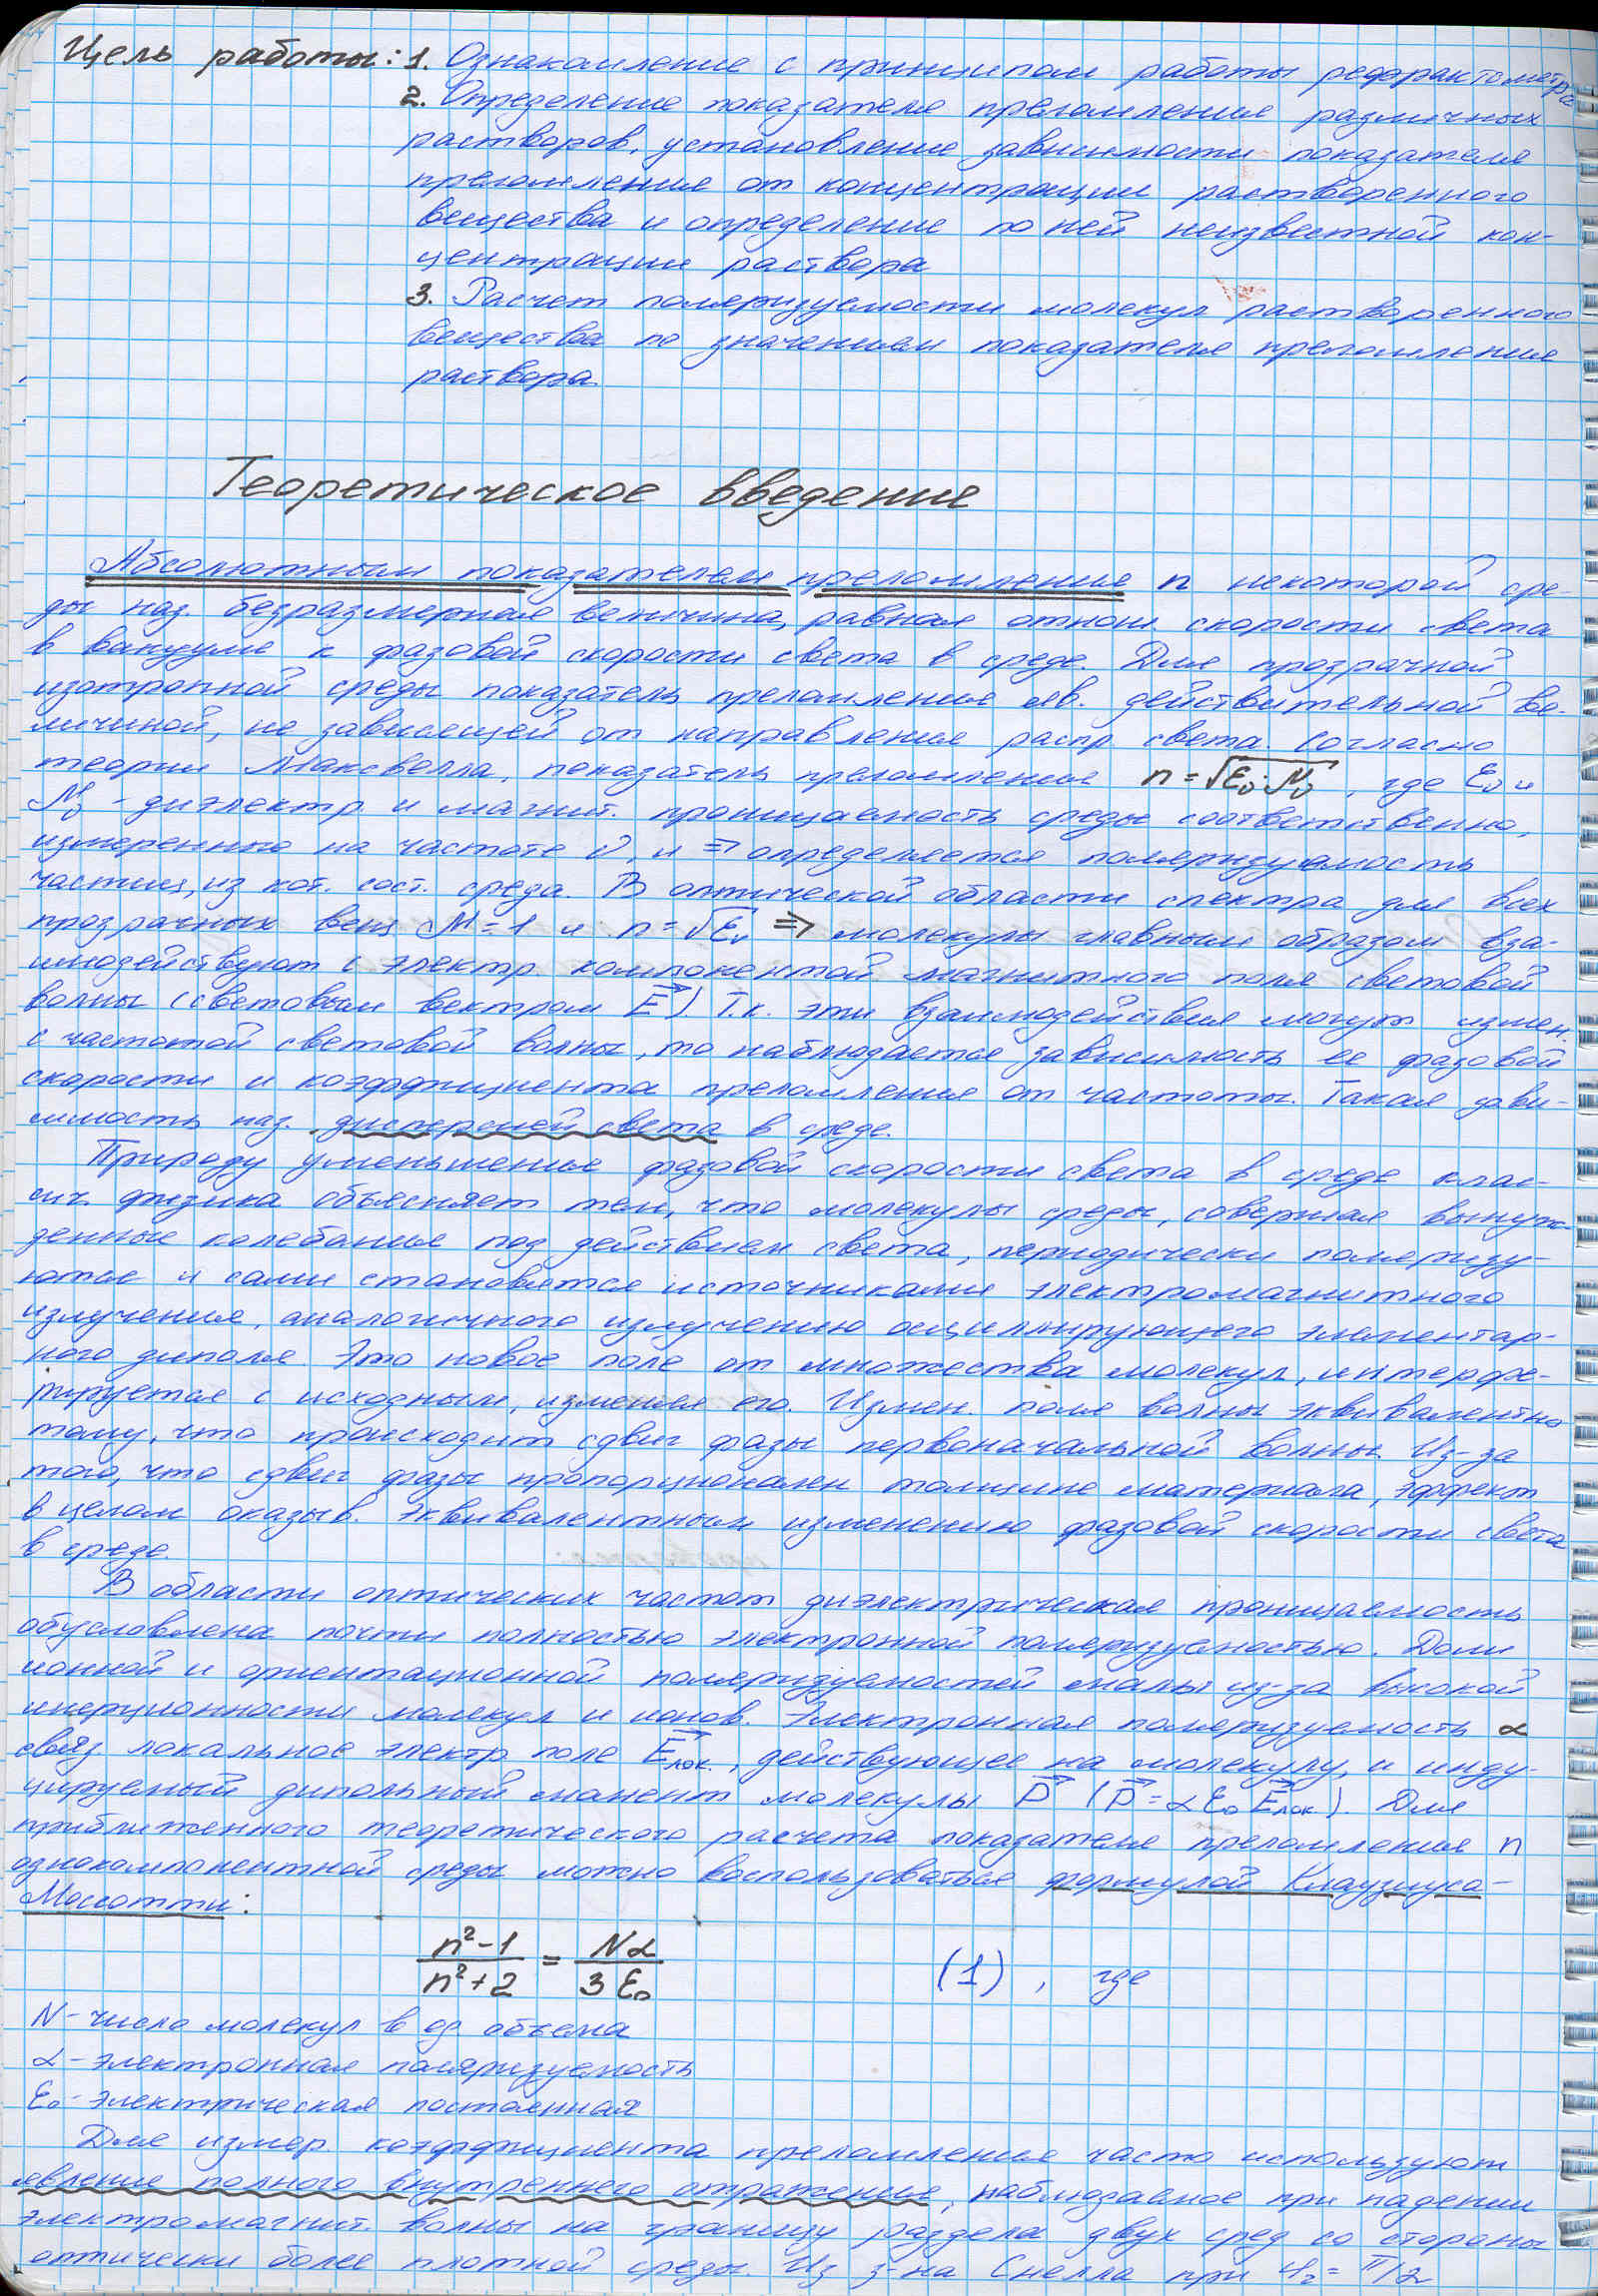 Цель работы: 1. Ознакомление с принципом работы рефрактометра
2. Определение показателя преломления различных
растворов, установление зависимости показателя
преломления от концентрации растворенного
вещества и определение по ней неизвестной кон-
центрации раствора
3. Расчет поляризуемости молекул растворенного
вещества по значениям показателя преломления
раствора.
Теоретическое введение
Абсолютным показателем преломления n некоторой сре-
ды наз. безразмерная величина, равная отнош. скорости света
в вакууме к фазовой скорости света в среде. Для прозрачной
изотропной среды показатель преломления яв. действительной ве-
личиной, не зависящей от направления распр. света. Согласно
теории Максвелла, показатель преломления n = √ευ·μυ, где ευ и
μυ - диэлектр. и магнит. проницаемость среды соответственно,
измеренные на частоте υ, и ⇒ определяется поляризуемость
частиц, из кот. сост. среда. В оптической области спектра для всех
прозрачных вещ. μ = 1 и n = √ευ ⇒ молекулы главным образом вза-
имодействуют с электр. компонентой магнитного поля световой
волны (световым вектором E⃗). Т.к. эти взаимодействия могут измен.
с частотой световой волны, то наблюдается зависимость ее фазовой
скорости и коэффициента преломления от частоты. Такая зави-
симость наз. дисперсией света в среде.
Природу уменьшения фазовой скорости света в среде клас-
сич. физика объясняет тем, что молекулы среды, совершая вынуж-
денные колебания под действием света, периодически поляризу-
ются и сами становятся источниками электромагнитного
излучения, аналогичного излучению осциллирующего элементар-
ного диполя. Это новое поле от множества молекул, интерфе-
рируется с исходным, изменяя его. Измен. поля волны эквивалентно
тому, что происходит сдвиг фазы первоначальной волны. Из-за
того, что сдвиг фазы пропорционален толщине материала, эффект
в целом оказыв. эквивалентным изменению фазовой скорости света
в среде.
В области оптических частот диэлектрическая проницаемость
обусловлена почти полностью электронной поляризуемостью. Доли
ионной и ориентационной поляризуемостей малы из-за высокой
инерционности молекул и ионов. Электронная поляризуемость α
связ. локальное электр. поле E⃗лок., действующее на молекулу, и инду-
цируемый дипольный момент молекулы p⃗ (p⃗ = αε₀E⃗лок.). Для
приближенного теоретического расчета показателя преломления n
однокомпонентной среды можно воспользоваться формулой Клаузиуса-
Моссотти:
(n²-1)/(n²+2) = Nα/(3ε₀) (1), где
N - число молекул в ед. объема
α - электронная поляризуемость
ε₀ - электрическая постоянная
Для измер. коэффициента преломления часто используют
явление полного внутреннего отражения, наблюдаемое при падении
электромагнит. волны на границу раздела двух сред со стороны
оптически более плотной среды. Из з-на Снелла при φ₂ = π/2